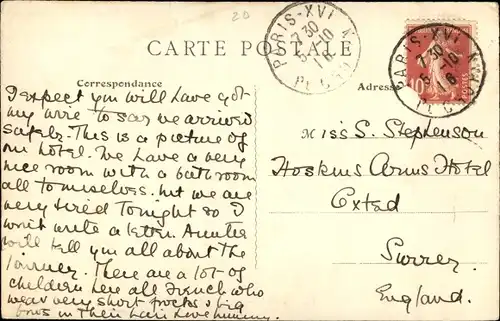 20
CARTE POSTALE
PARIS-XVI
7 30
5-10
16
PARIS-XVI
7 30
5-10
16
10
POSTES
Correspondance
Adresse
I expect you will have got
my wire to say we arrived
safely. This is a picture of
our hotel. We have a very
nice room with a bathroom
all to ourselves. but we are
very tired Tonight so I
won't write a letter. Auntie
will tell you all about the
journey. There are a lot of
children here all French who
wear very short frocks & big
bows in Their hair Love Mummy.
Miss S. Stephenson
Hoskins Arms Hotel
Oxted
Surrey.
England.